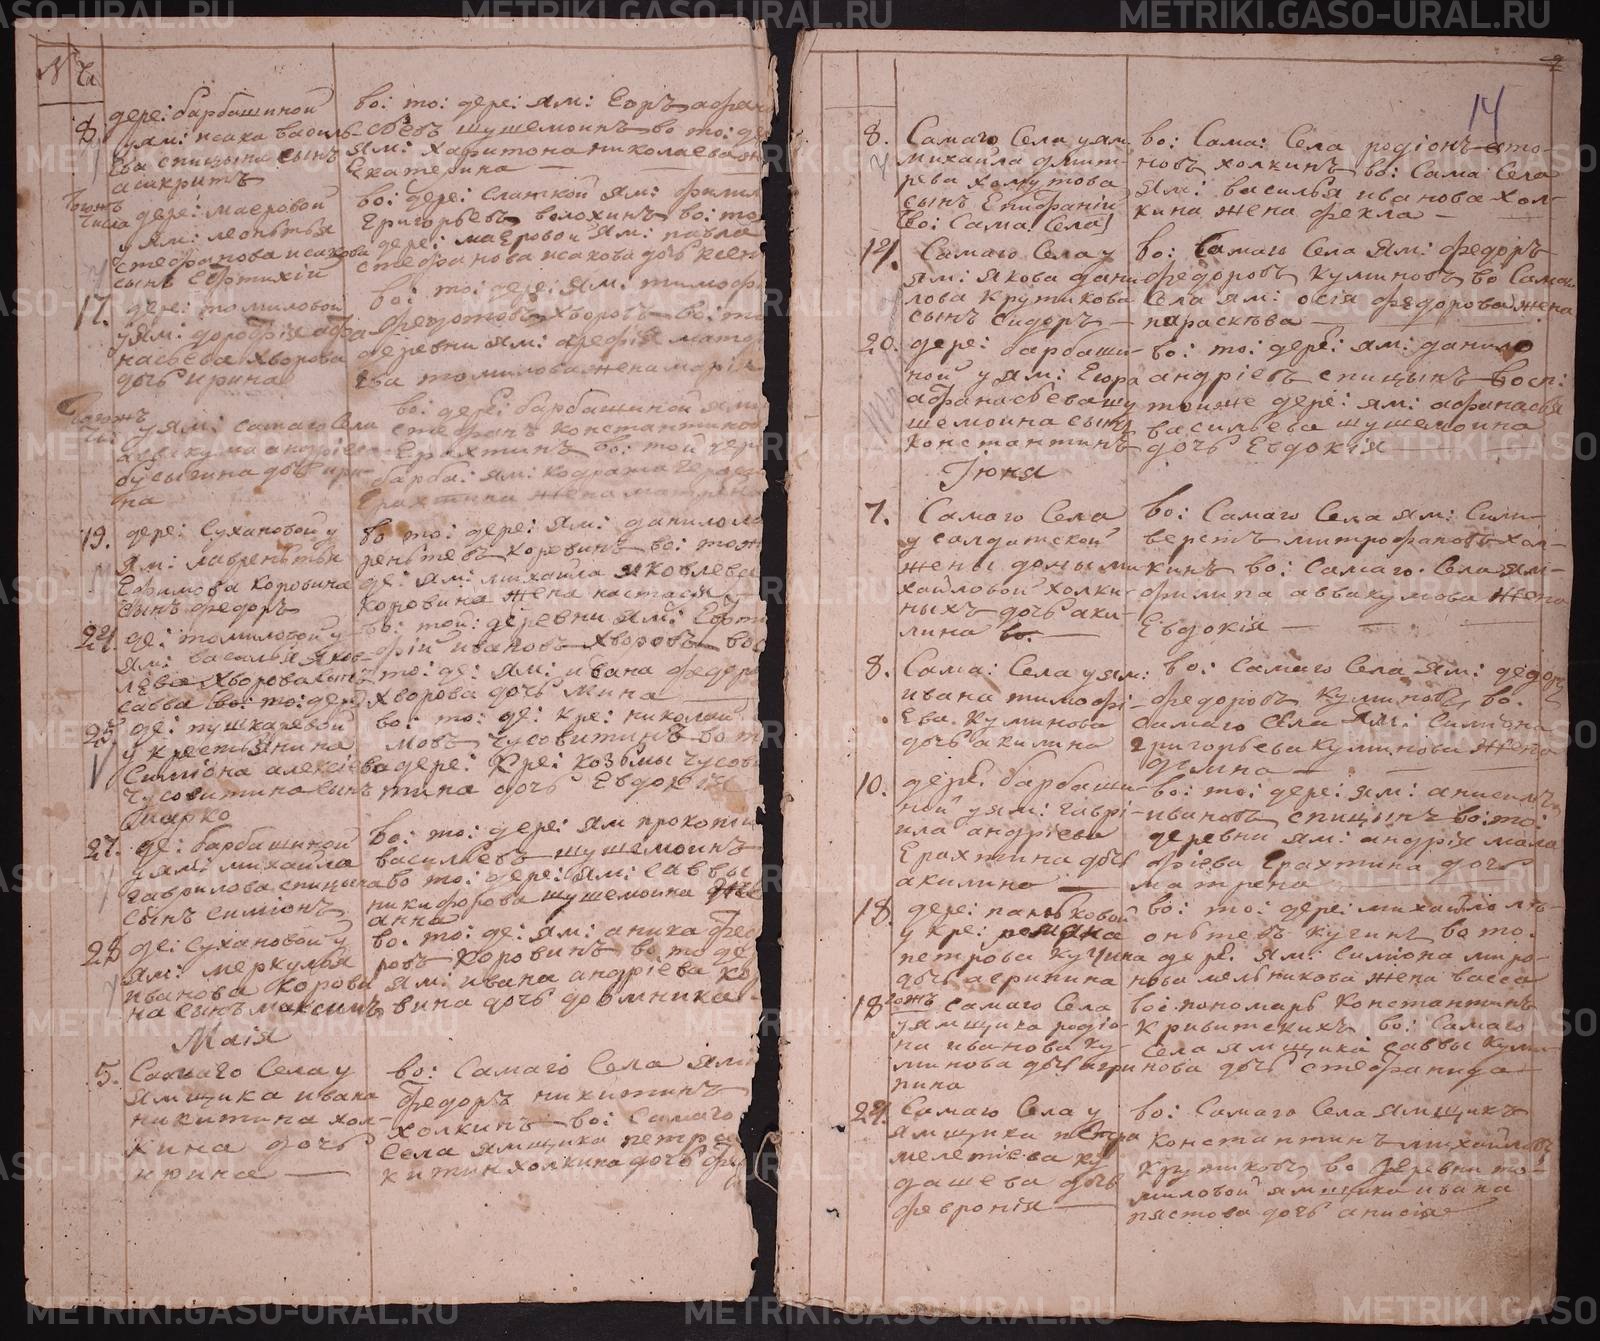 № Чи
8 дере: барбашиной
у ям: исака василь-
ева спицына сынъ
во: то: дере: ям: Егоръ афан
сьевъ шушемоинъ во то: де
ям: харитона николаева
Екатерина —
тогожъ
числа дере: маеровой
у ям: леонтья
стефанова исакова
сынъ Евтихий
во: дере: слиткой ям: филип
григорьевъ волохинъ во: то
дере: маеровой ям: павла
стефанова исакова дочь ксен
17. дере: томиловой
у ям: дорофея афа
насьева хворова
дочь ирина
во: то: дере: ям: тимоф
федотовъ хворовъ во: то
деревни ям: арефья
ева томилова жена марія
тогожъ
чи: у ям: самаго села
аввакума андріев
бусыгина дочь ири-
на
во: дере: барбашиной ям:
стефанъ константинов
Ерахтинъ во: той дере
барба: ям:
Ерахтина жена матрена
19. дере: Сухановой у
ям: лаврентья
Ефимова коровина
сынъ федоръ
во то: дере: ям: данило ла
рентьевъ коровинъ во: тож
де: ям: михаила яковлева
коровина жена настасья
24. де: томиловой у
ям: василья яков-
лева хворова сынъ
савва во: то: дере
во: той: деревни ям: Евти
фій ивановъ хворовъ во:
то: де: ям: ивана федоро
хворова дочь мина —
25 де: пушкаревой
у крестьянина
Симіона алексіева
чусовитина сынъ
марко
во: то: де: кре: николай
мовъ чусовитинъ во т
дере: кре: козьмы чусови
тина дочь Евдокія
27. де: барбашиной
у ям: михаила
гаврилова спицына
сынъ симіонъ
во: то: дере: ям прокопий
васильевъ шушемоинъ
во то: дере: ям: саввы
никифорова шушемоина
анна
28 де: сухановой у
ям: меркулья
иванова корови
на сынъ максимъ
во: то: де: ям: аника фео
ровъ коровинъ во то де
ям: ивана андріева ко
вина дочь домника
Маія
5. Самаго Села у
ямщика ивана
никитина хол-
кина дочь
ирина —
во: Самаго Села ям:
федоръ никитинъ
холкинъ во: Самаго
села ямщика петра
китин холкина дочь
14
8. Самаго Села у ям
михаила дмит-
рева хомутова
сынъ Епифаний
во: Сама Села
во: Сама: Села родіонъ анто-
новъ холкинъ во: Сама Села
ям: василья иванова хол-
кина жена фекла —
14. Самаго Села у
ям: якова дани
лова крутикова
сынъ сидоръ —
во: Самаго Села ям: федоръ
федоровъ куминовъ во Самаго
Села ям: осія федорова жена
параскева —
20. дере: барбаши-
ной у ям: Егора
афанасьева шу
шемоина сынъ
константинъ
во: то: дере: ям: данило
андріевъ спицынъ восп:
тойже дере: ям: афанасья
васильева шушемоина
дочь Евдокія —
Іюня
7. Самаго Села
у салдатской
жены домны ми
хайловой холки-
ныхъ дочь аки-
лина во. —
во: Самаго Села ям: Сили-
верстъ митрофановъ хол-
кинъ во: Самаго Села ям-
филипа аввакумова жена
Евдокія —
8. Сама: Села у ям:
ивана тимофі-
Ева куминова
дочь акилина
во: Самаго Села ям: федоръ
федоровъ куминовъ во.
Самаго Села ям: Симіона
григорьева куминова жена
10. дере: барбаши
ной у ям: гаврі-
ила андріева
Ерахтина дочь
акилина —
во: то: дере: ям: анисимъ
ивановъ спицынъ во: то:
деревни ям: андрія мала
фіева Ерахтина дочь
матрена
18. дере: паньковой
у кре: романа
петрова кучина
дочь агрипина
во: то: дере: михайло ле-
онтевъ кучинъ во то.
дере: ям: Симіона миро-
нова мельникова жена васса
18 тожъ самаго Села
у ямщика родіо-
на иванова ку-
минова дочь агри
пина
во: пономарь Константинъ
Кривитскихъ во: Самаго
Села ямщика саввы куми-
нова дочь стефанида
24. Самаго Села у
ямщика петра
мелетіева ку
дашева дочь
февронія —
во: Самаго Села ямщикъ
константинъ михайловъ
крутиковъ во деревни то-
миловой ямщика ивана
пястова дочь анисія